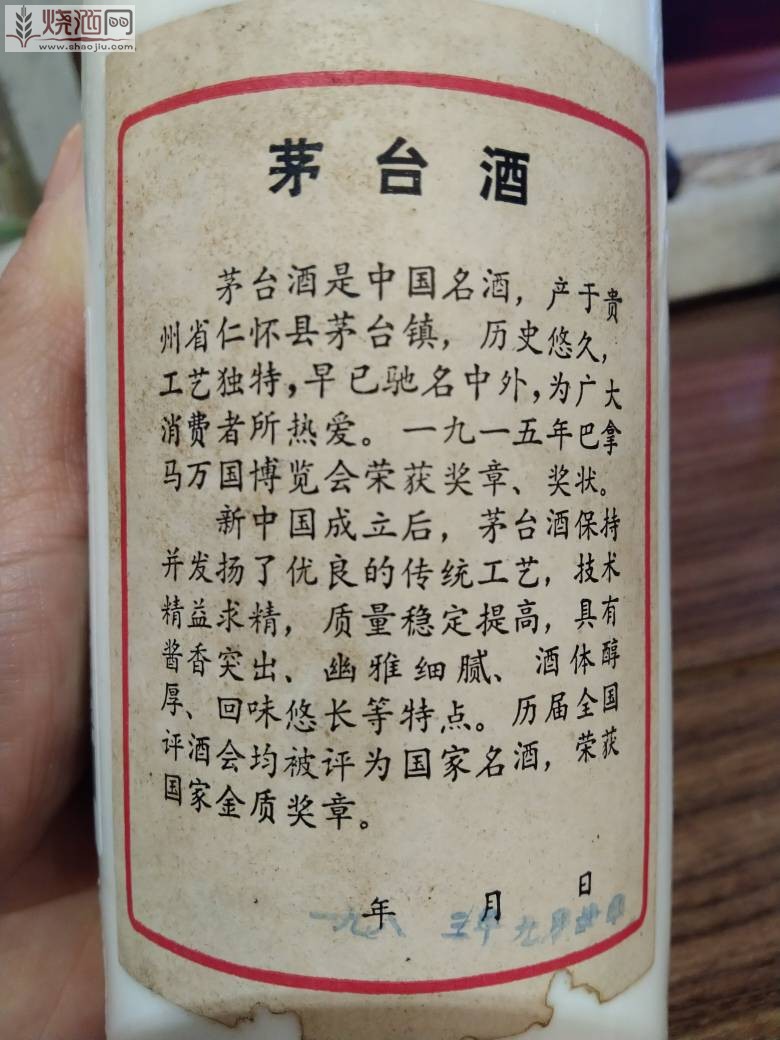 烧酒网
www.shaojiu.com
茅台酒
茅台酒是中国名酒，产于贵
州省仁怀县茅台镇，历史悠久，
工艺独特，早已驰名中外，为广大
消费者所热爱。一九一五年巴拿
马万国博览会荣获奖章、奖状。
新中国成立后，茅台酒保持
并发扬了优良的传统工艺，技术
精益求精，质量稳定提高，具有
酱香突出、幽雅细腻、酒体醇
厚、回味悠长等特点。历届全国
评酒会均被评为国家名酒，荣获
国家金质奖章。
年 月 日
一九八三年九月